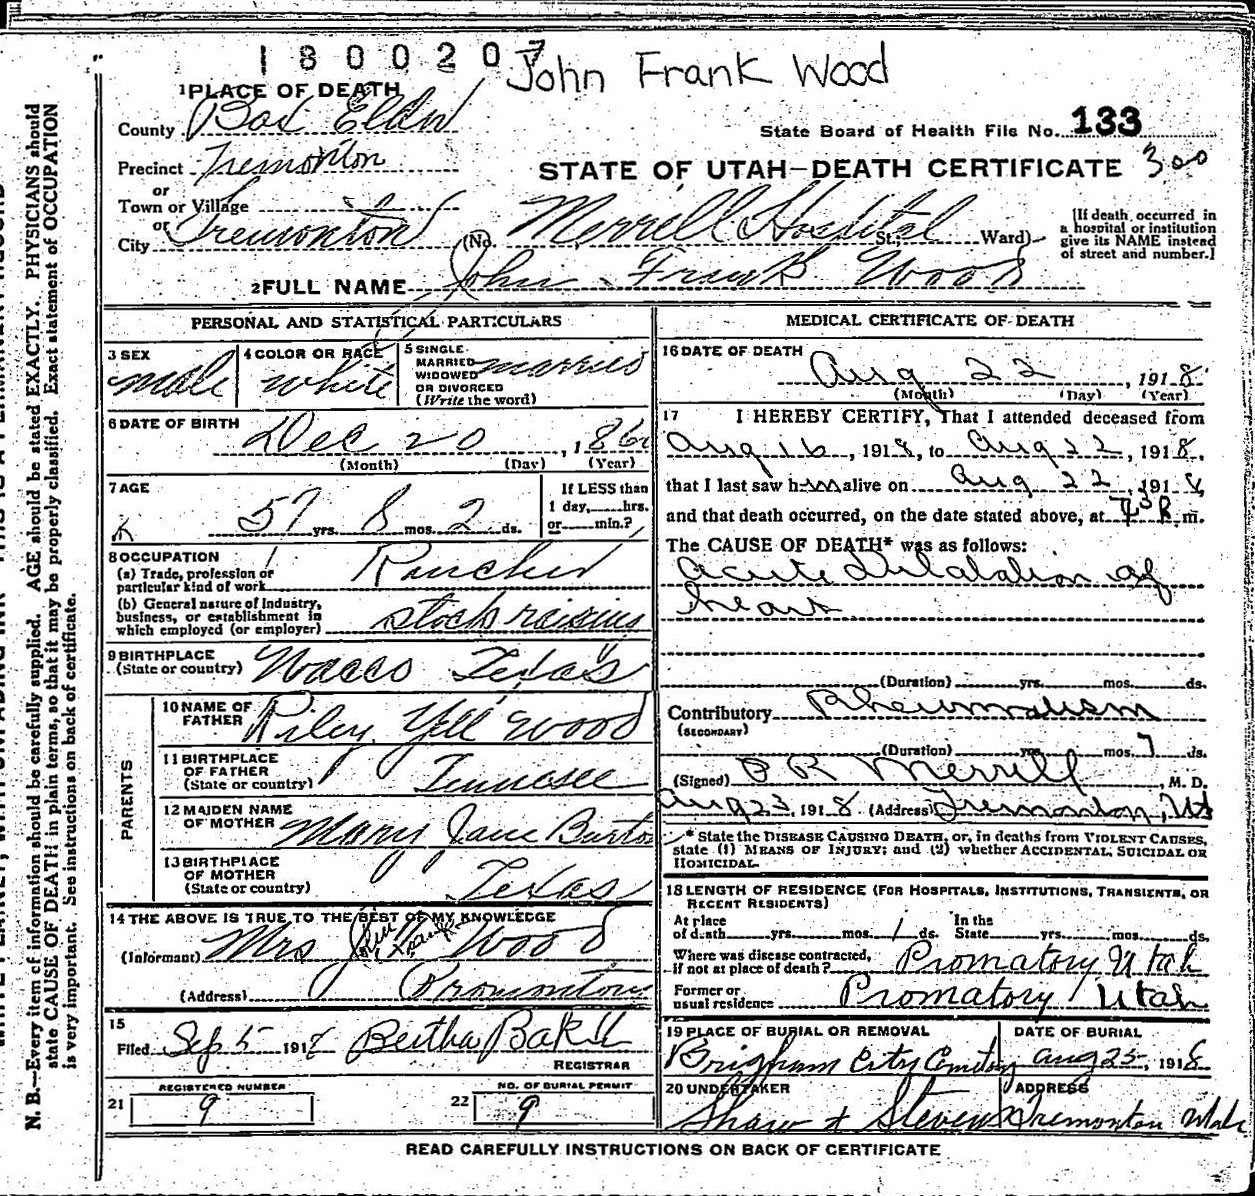 1800207
John Frank Wood
1 PLACE OF DEATH
County Box Elder
State Board of Health File No. 133
Precinct Tremonton
STATE OF UTAH—DEATH CERTIFICATE 300
or
Town or Village
or
City Tremonton (No. Merrell Hospital St., Ward)
[If death occurred in
a hospital or institution
give its NAME instead
of street and number.]
2 FULL NAME John Frank Wood
PERSONAL AND STATISTICAL PARTICULARS
3 SEX
male
4 COLOR OR RACE
white
5 SINGLE
MARRIED
WIDOWED
OR DIVORCED
(Write the word)
married
6 DATE OF BIRTH
Dec 20, 186
(Month) (Day) (Year)
7 AGE
57 yrs. 8 mos. 2 ds.
If LESS than
1 day, hrs.
or min.?
8 OCCUPATION
(a) Trade, profession or
particular kind of work Rancher
(b) General nature of Industry,
business, or establishment in
which employed (or employer) stock raising
9 BIRTHPLACE
(State or country) Wacco Texas
PARENTS
10 NAME OF
FATHER Riley Yell Wood
11 BIRTHPLACE
OF FATHER
(State or country) Tennesee
12 MAIDEN NAME
OF MOTHER Mary Jane Burton
13 BIRTHPLACE
OF MOTHER
(State or country) Texas
14 THE ABOVE IS TRUE TO THE BEST OF MY KNOWLEDGE
(Informant) Mrs John Frank Wood
(Address)
15
Filed Sep 5 191 Bertha Baker
REGISTRAR
REGISTERED NUMBER
21 9
NO. OF BURIAL PERMIT
22 9
MEDICAL CERTIFICATE OF DEATH
16 DATE OF DEATH
Aug 22, 1918
(Month) (Day) (Year)
17 I HEREBY CERTIFY, That I attended deceased from
Aug 16, 1918, to Aug 22, 1918,
that I last saw him alive on Aug 22, 1918,
and that death occurred, on the date stated above, at m.
The CAUSE OF DEATH* was as follows:
Acute Dilatation of
heart
(Duration) yrs. mos. ds.
Contributory Rheumatism
(SECONDARY)
(Duration) yrs. mos. 7 ds.
(Signed) Merrell, M. D.
Aug 23, 1918 (Address) Tremonton, Ut
* State the DISEASE CAUSING DEATH, or, in deaths from VIOLENT CAUSES,
state (1) MEANS OF INJURY; and (2) whether ACCIDENTAL, SUICIDAL OR
HOMICIDAL.
18 LENGTH OF RESIDENCE (FOR HOSPITALS, INSTITUTIONS, TRANSIENTS, OR
RECENT RESIDENTS)
At place In the
of death yrs. mos. 1 ds. State yrs. mos. ds.
Where was disease contracted,
if not at place of death? Promatory Utah
Former or
usual residence Promatory Utah
19 PLACE OF BURIAL OR REMOVAL
Brigham City Cemetery
DATE OF BURIAL
Aug 25, 1918
20 UNDERTAKER
Shaw & Stevens
ADDRESS
Tremonton Utah
READ CAREFULLY INSTRUCTIONS ON BACK OF CERTIFICATE
N. B.—Every item of information should be carefully supplied. AGE should be stated EXACTLY. PHYSICIANS should
state CAUSE OF DEATH in plain terms, so that it may be properly classified. Exact statement of OCCUPATION
is very important. See instructions on back of certificate.